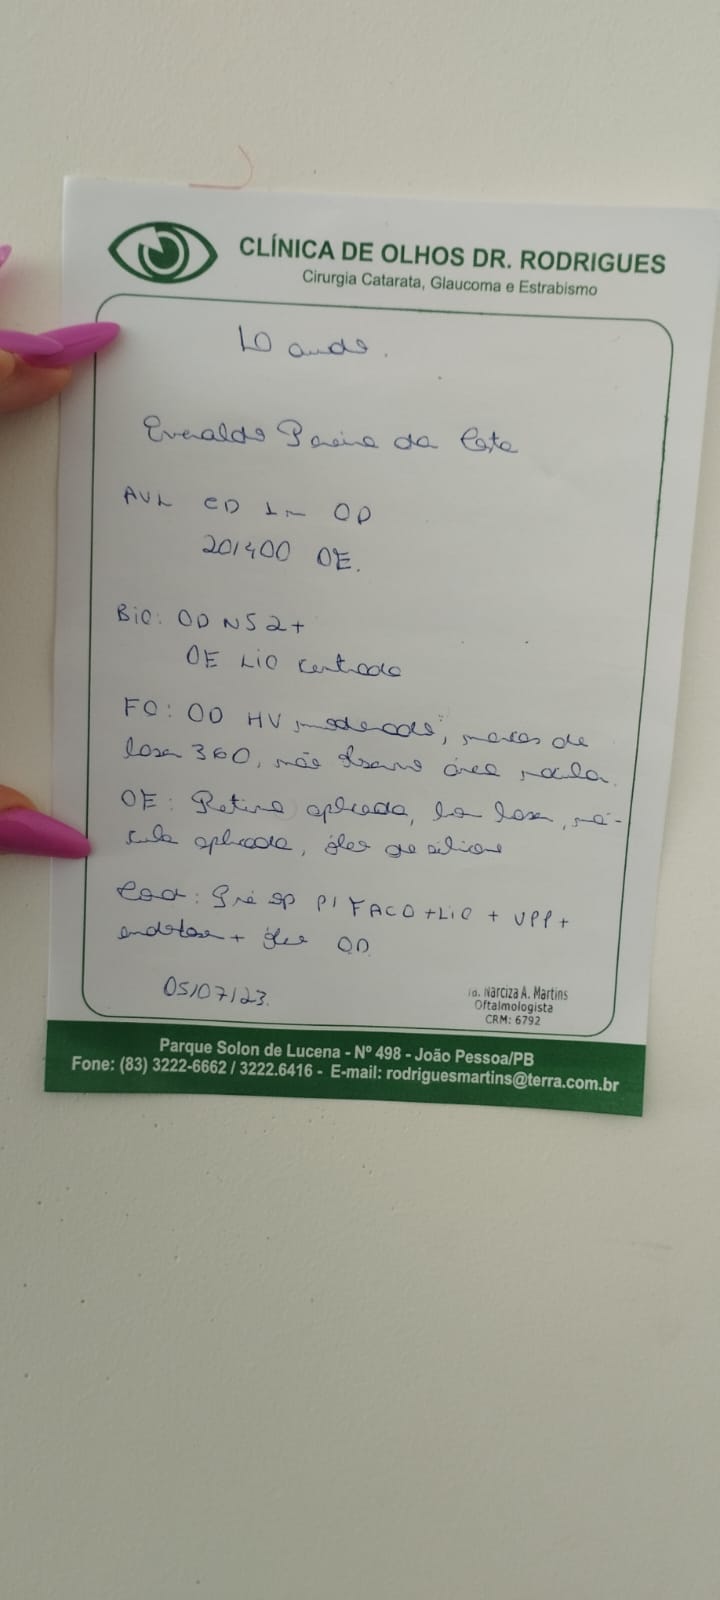 CLÍNICA DE OLHOS DR. RODRIGUES
Cirurgia Catarata, Glaucoma e Estrabismo
Laudo.
Everaldo Pereira da
AVL CD 1m OD
20/400 OE.
Bio: OD NS2+
OE LIO centrado
FO: OD HV moderado, marcas de
laser 360, não observo área macular.
OE: Retina aplicada, laser, má-
cula aplicada, óleo de silicone
Cod: Pré op P/ FACO+LIO + VPP+
endolaser + óleo OD.
05/07/23.
Narciza A. Martins
Oftalmologista
CRM: 6792
Parque Solon de Lucena - Nº 498 - João Pessoa/PB
Fone: (83) 3222-6662 / 3222.6416 - E-mail: rodriguesmartins@terra.com.br